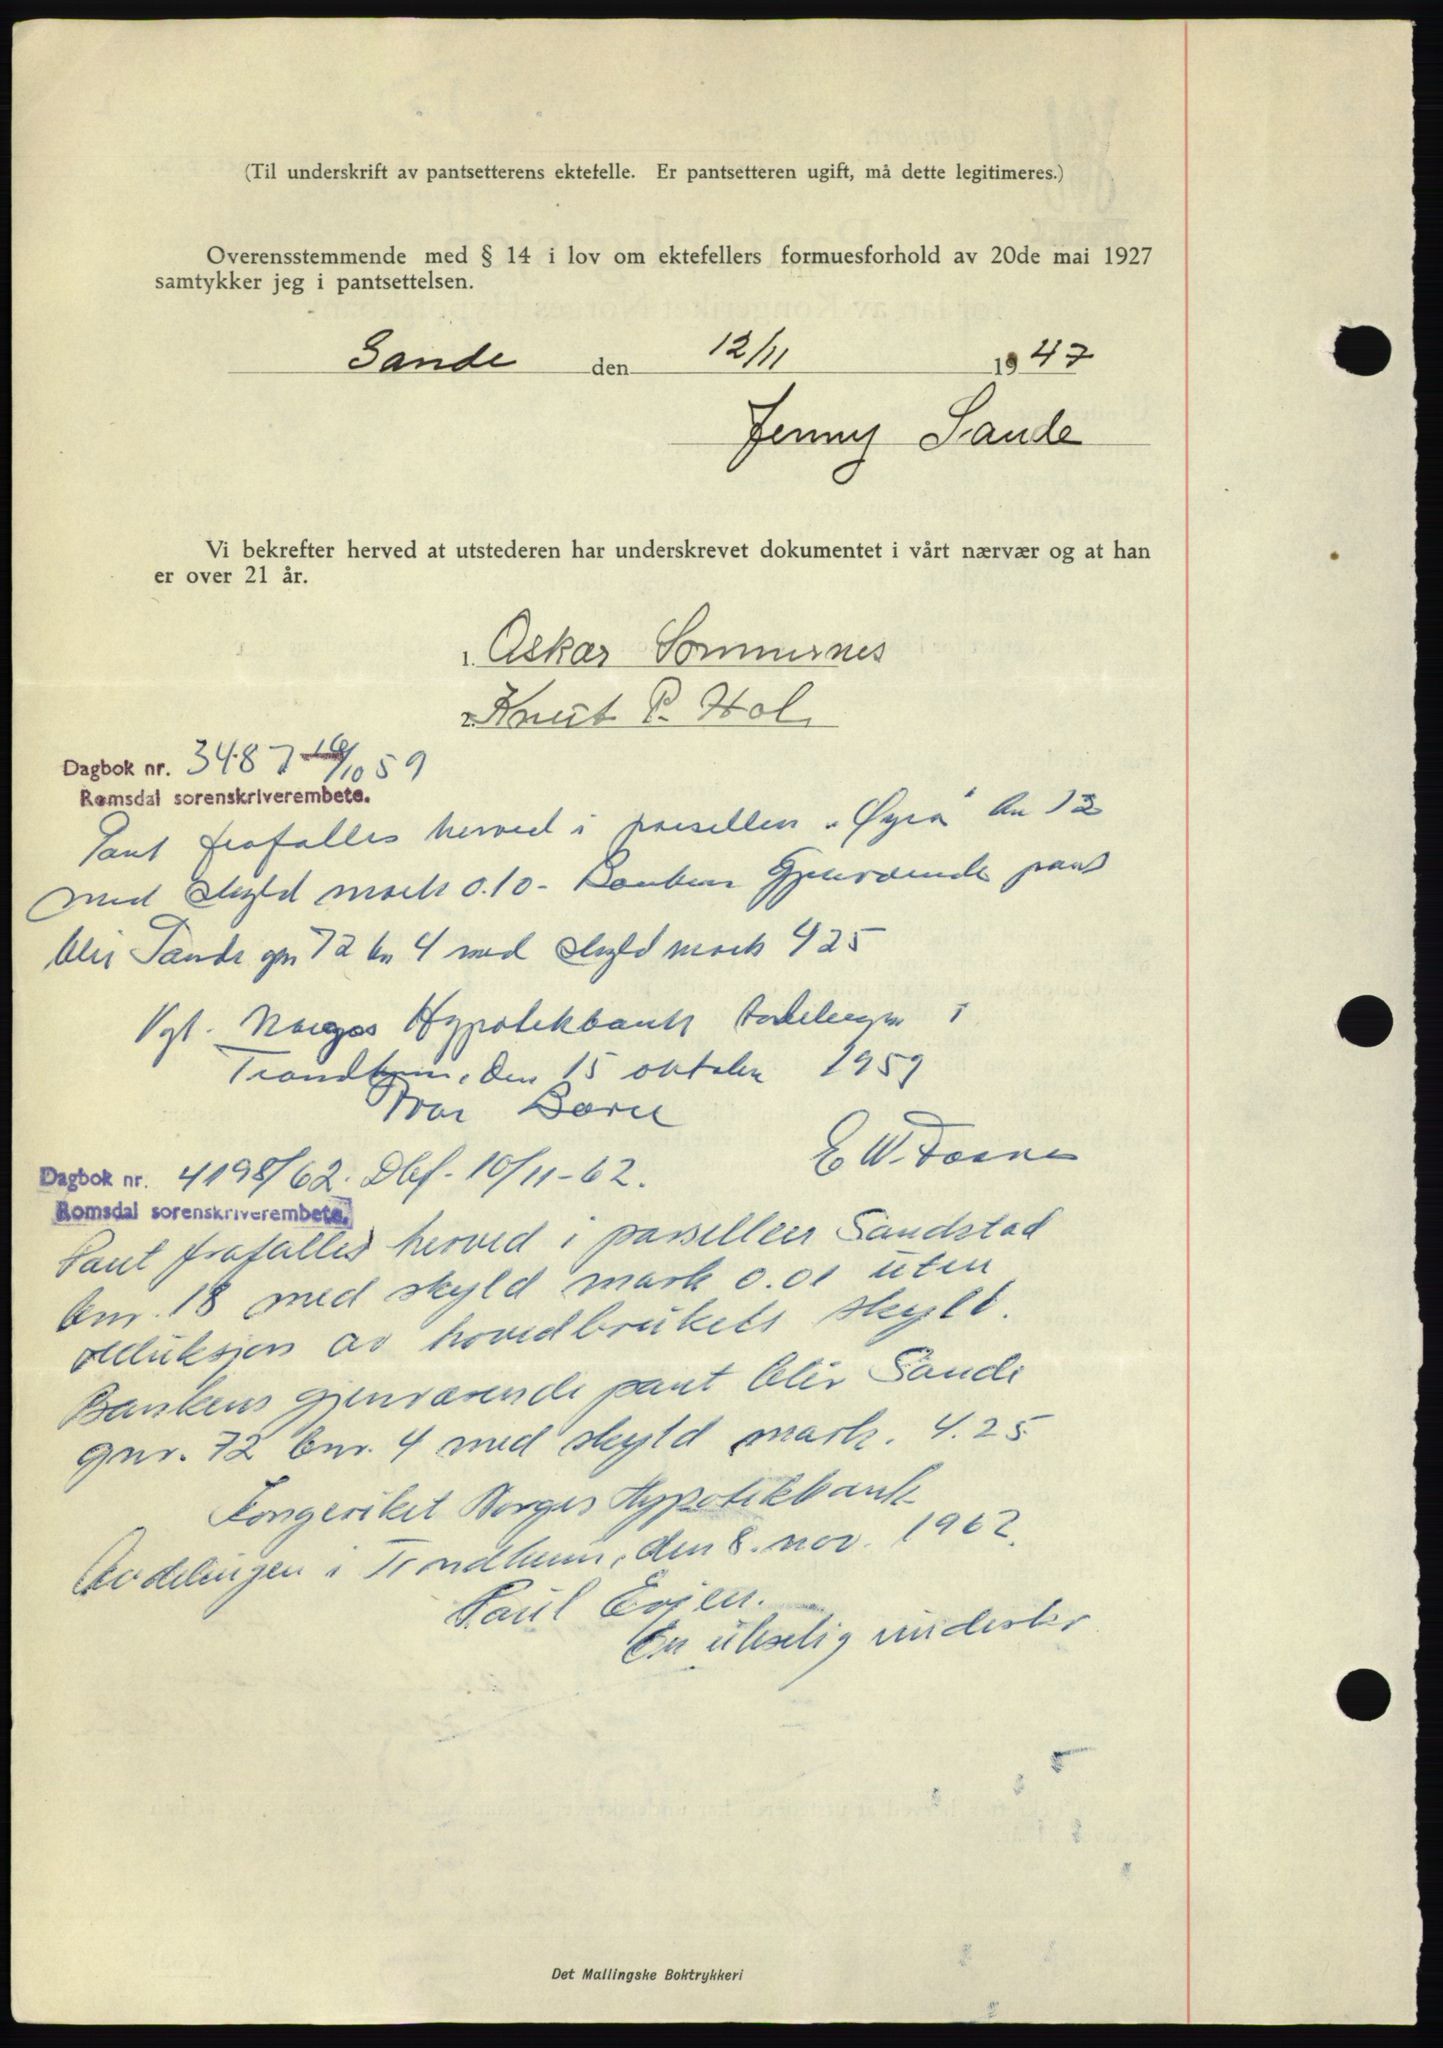 (Til underskrift av pantsetterens ektefelle. Er pantsetteren ugift, må dette legitimeres.)
Overensstemmende med § 14 i lov om ektefellers formuesforhold av 20de mai 1927
samtykker jeg i pantsettelsen.
Sande den 12/11 1947
Jenny Sande
Vi bekrefter herved at utstederen har underskrevet dokumentet i vårt nærvær og at han
er over 21 år.
1. Oskar Sommernes
2. Knut P. Hol
Dagbok nr. 3487 16/10 59
Romsdal sorenskriverembete.
Pant frafalles herved i parsellen "Øyra" bn 12
med skyld mark 0.10 - Bankens gjenværende pant
blir Sande gn 72 bn 4 med skyld mark 4 25
Vgt. Norges Hypotekbank Avdelingen i
Trondheim, den 15 oktober 1959
Ivar
E W.
Dagbok nr. 4198/62. Dbf. 10/11-62.
Romsdal sorenskriverembete.
Pant frafalles herved i parsellen Sandstad
bnr. 18 med skyld mark 0.01 uten
reduksjon av hovedbrukets skyld.
Bankens gjenværende pant blir Sande
gnr. 72 bnr. 4 med skyld mark. 4.25
Kongeriket Norges Hypotekbank
Avdelingen i Trondheim, den 8. nov. 1962.
Paul Evjen.
En uleselig underskr
Det Mallingske Boktrykkeri